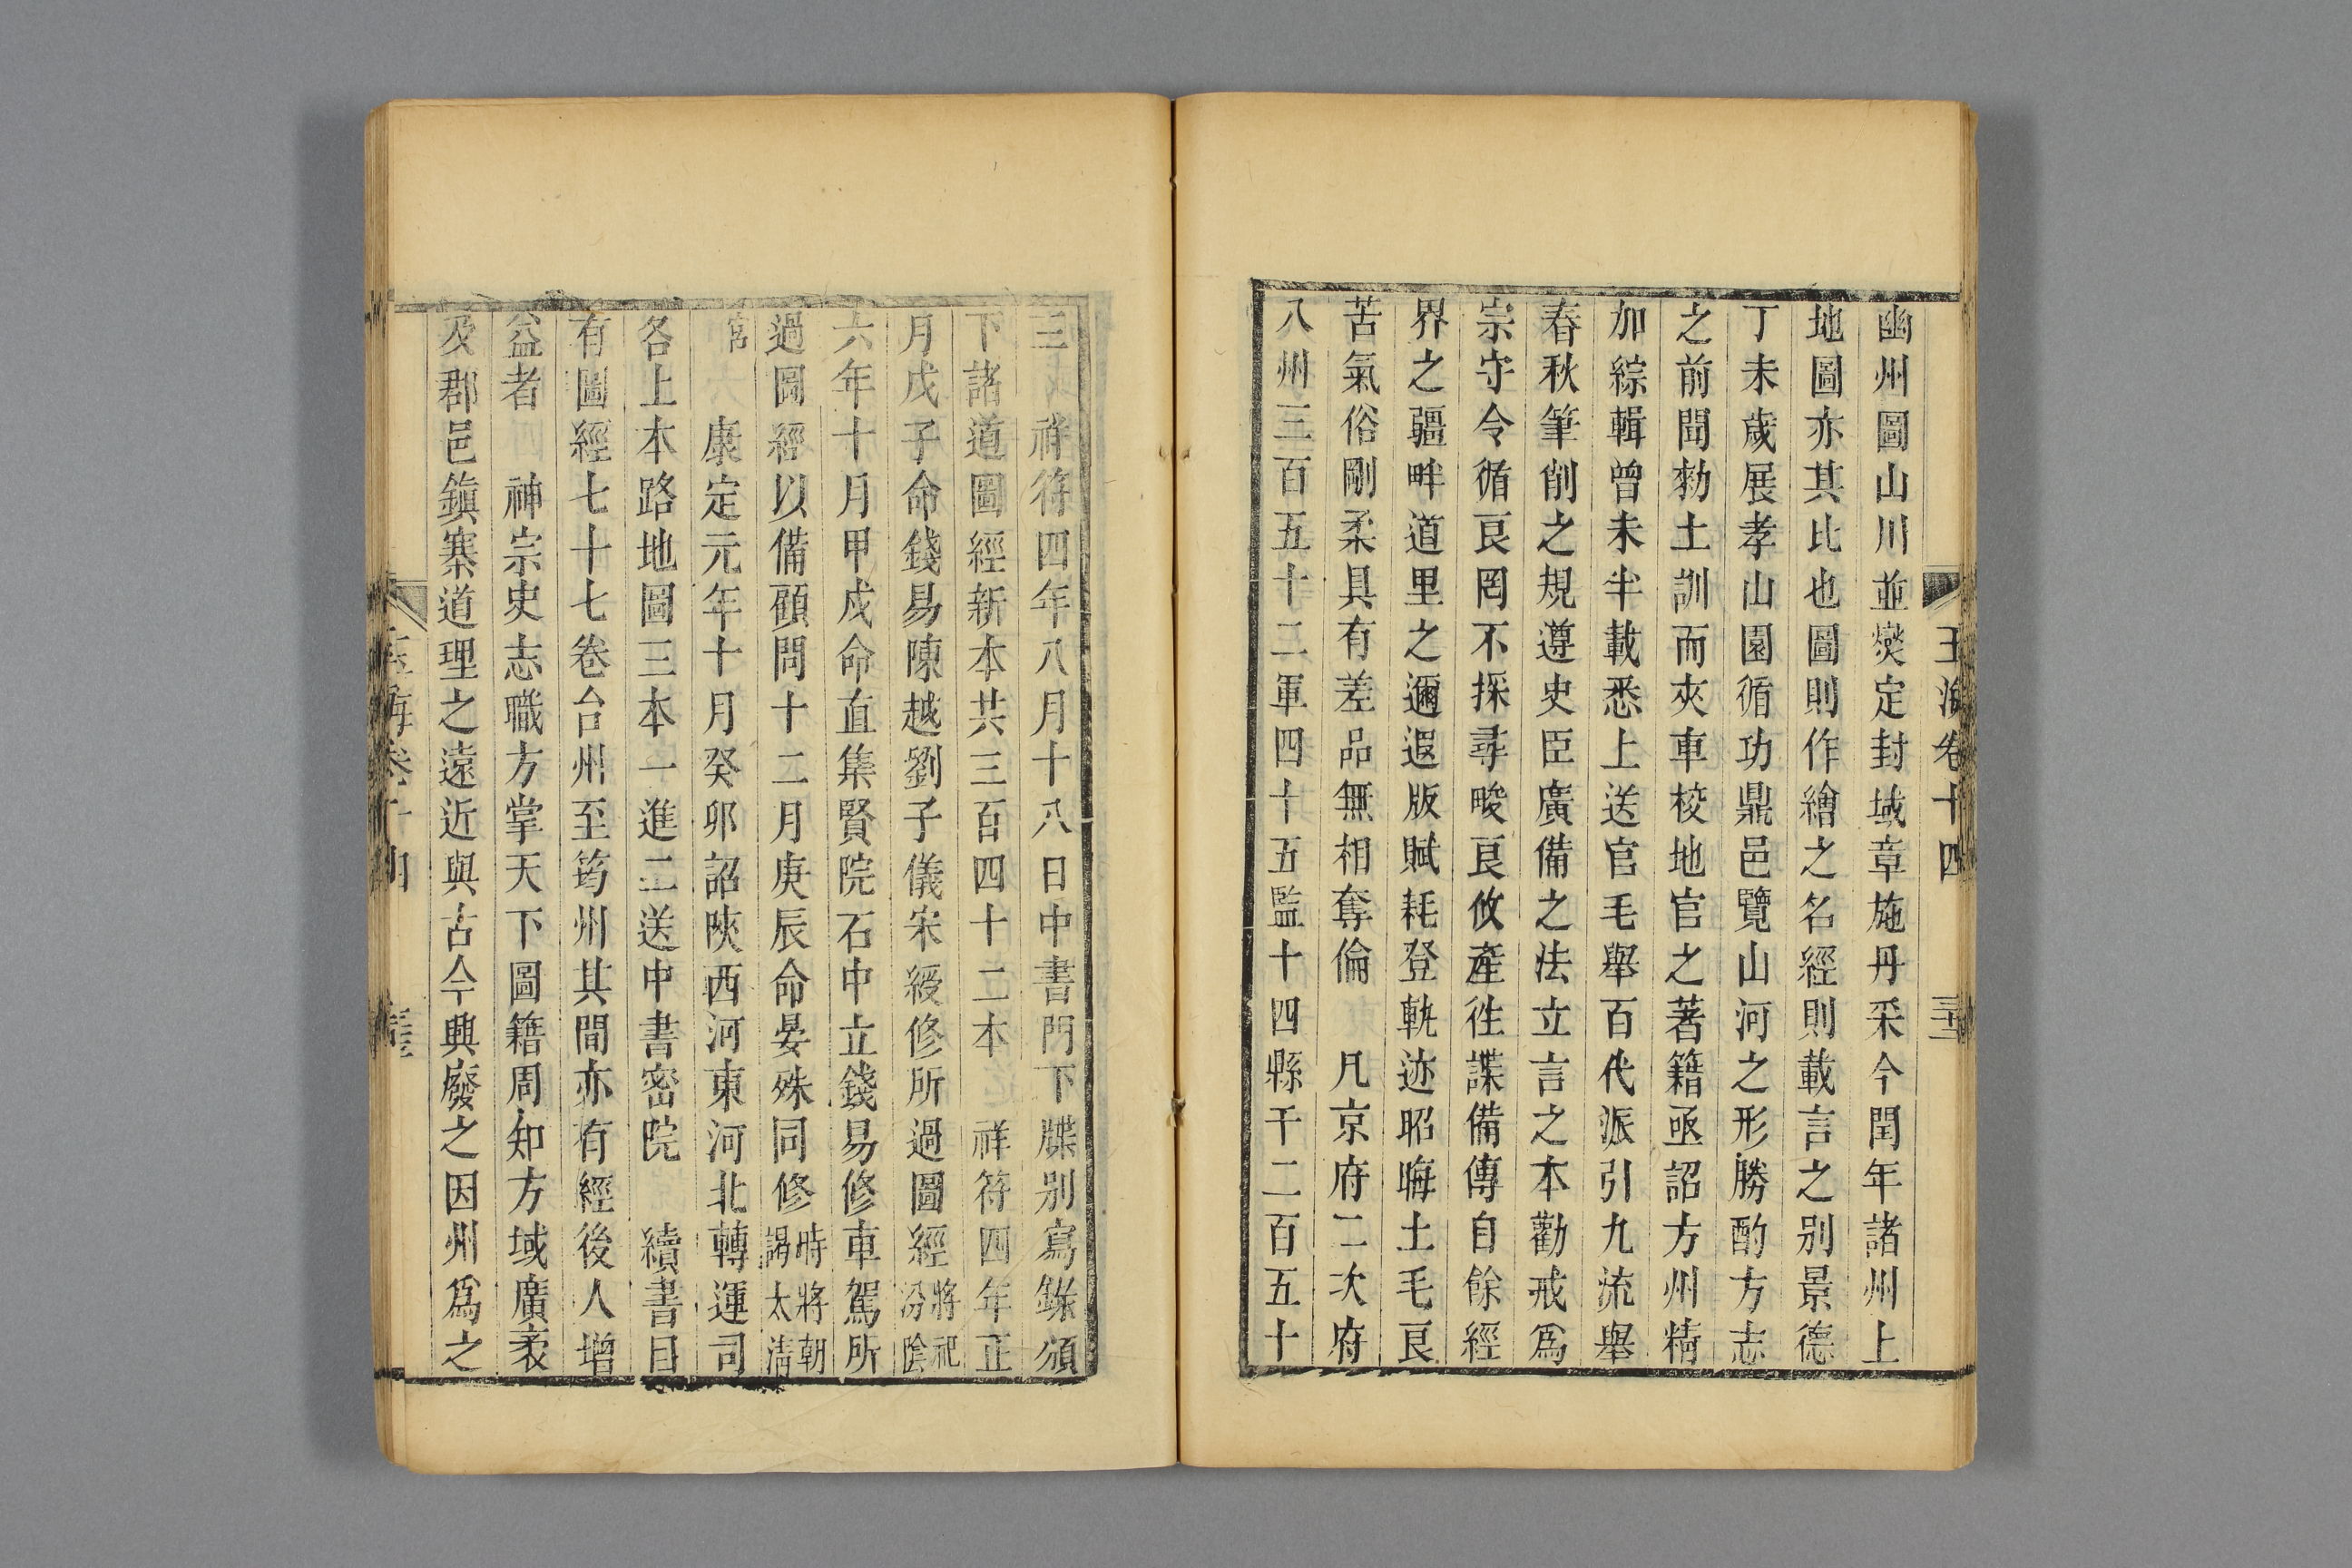 玉海卷十四
幽州圖山川並爕定封域章施丹采今閏年諸州上
地圖亦其比也圖則作繪之名經則載言之别景德
丁未歲展孝山園循功鼎邑覽山河之形勝酌方志
之前聞勑土訓而夾車校地官之著籍亟詔方州精
加綜輯曾未半載悉上送官毛舉百代派引九流舉
春秋筆削之規遵史臣廣備之法立言之本勸戒爲
宗守令循良罔不採尋畯良攸產徃諜備傳自餘經
界之疆畔道里之邇遐版賦耗登軌迹昭晦土毛良
苦氣俗剛柔具有差品無相奪倫　凡京府二次府
八州三百五十二軍四十五監十四縣千二百五十
三　祥符四年八月十八日中書門下牒别寫錄頒
下諸道圖經新本共三百四十二本　祥符四年正
月戊子命錢易陳越劉子儀宋綬修所過圖經將祀汾陰
六年十月甲戌命直集賢院石中立錢易修車駕所
過圖經以備顧問十二月庚辰命晏殊同修時將朝謁太淸
宮　康定元年十月癸卯詔陜西河東河北轉運司
各上本路地圖三本一進二送中書密院　續書目
有圖經七十七卷台州至筠州其間亦有經後人增
益者　神宗史志職方掌天下圖籍周知方域廣袤
及郡邑鎭寨道理之遠近與古今興廢之因州爲之
玉海卷十四